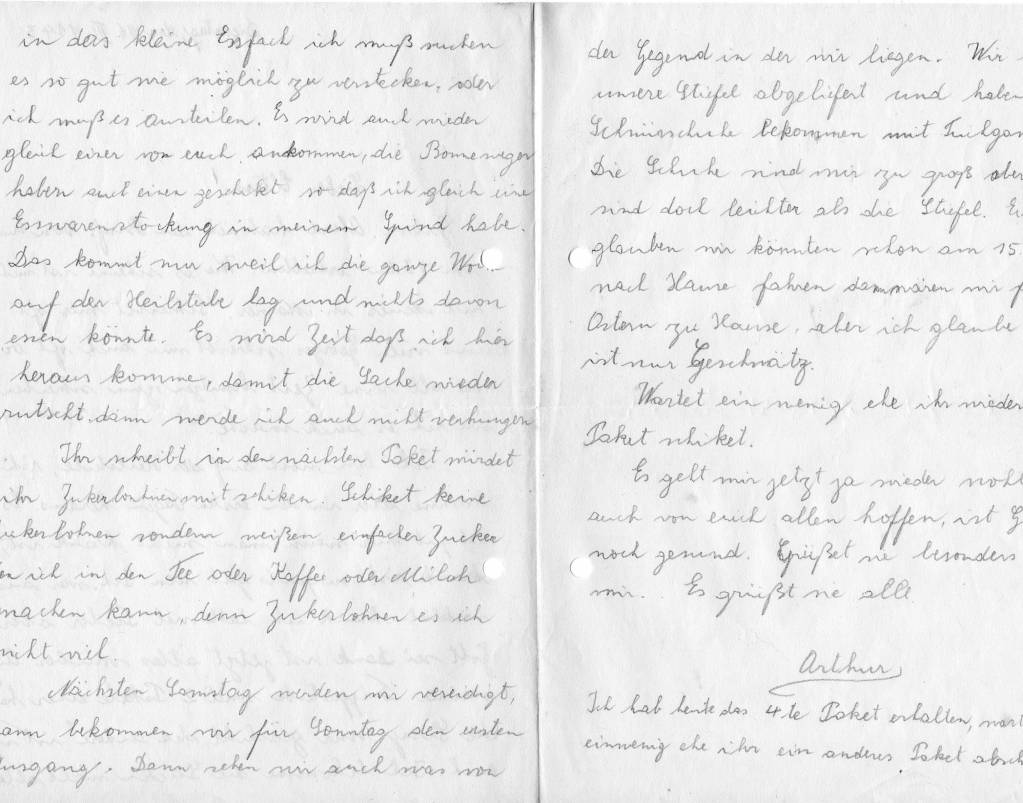 in das kleine Essfach ich muß suchen
es so gut wie möglich zu verstecken, oder
ich muß es austeilen. Es wird auch wieder
gleich einer von euch ankommen, die Bonneweger
haben auch einen geschikt so daß ich gleich eine
Esswarenstockung in meinem Spind habe.
Das kommt nur weil ich die ganze Wo
auf der Heilstube lag und nichts davon
essen könnte. Es wird Zeit daß ich hier
heraus komme, damit die Sache wieder
rutscht, dann werde ich auch nicht verhungern
Ihr schreibt in den nächsten Paket würdet
ihr Zukerbohnen mit schiken. Schiket keine
ukerbohnen sondern weißen einfacher Zucker
en ich in den Tee oder Kaffee oder Milch
machen kann, denn Zukerbohnen es ich
nicht viel
Nächsten Samstag werden wir vereidigt,
ann bekommen wir für Sonntag den ersten
usgang. Dann sehen wir auch was von
der Gegend in der wir liegen. Wir
unsere Stiefel abgeliefert und haben
Schnürschuhe bekommen mit
Die Schuhe sind mir zu groß aber
sind doch leichter als die Stiefel.
glauben wir könnten schon am 15.
nach Hause fahren dann wären wir f
Ostern zu Hause, aber ich glaube
ist nur Geschwätz.
Wartet ein wenig ehe ihr wieder
Paket schiket.
Es geht mir jetzt ja wieder wohl
auch von euch allen hoffen, ist G
noch gesund. Grüßet sie besonders
mir. Es grüßt sie alle
Arthur
Ich hab heute das 4-te Paket erhalten, wart
einwenig ehe ihr ein anderes Paket absch